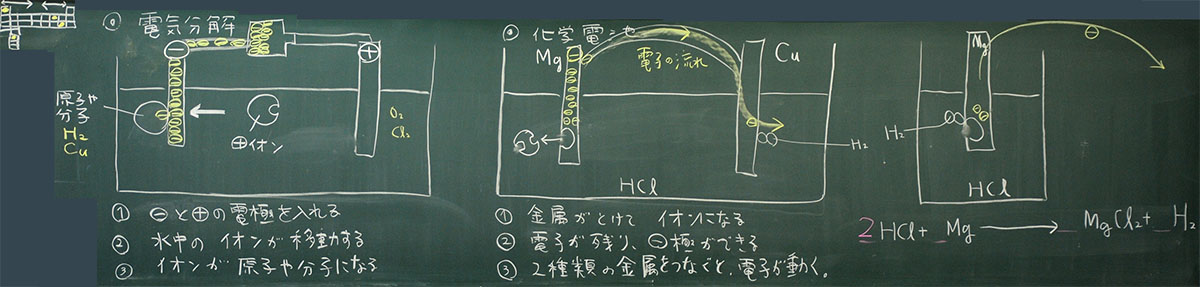 電気分解
⊖
⊕
原子や
分子
H₂
Cu
⊕イオン
O₂
Cl₂
① ⊖と⊕の電極を入れる
② 水中のイオンが移動する
③ イオンが原子や分子になる
化学電池
Mg
電子の流れ
Cu
H₂
HCl
① 金属がとけてイオンになる
② 電子が残り、⊖極ができる
③ 2種類の金属をつなぐと、電子が動く。
Mg
⊖
H₂
HCl
2HCl + _Mg → _MgCl₂ + _H₂